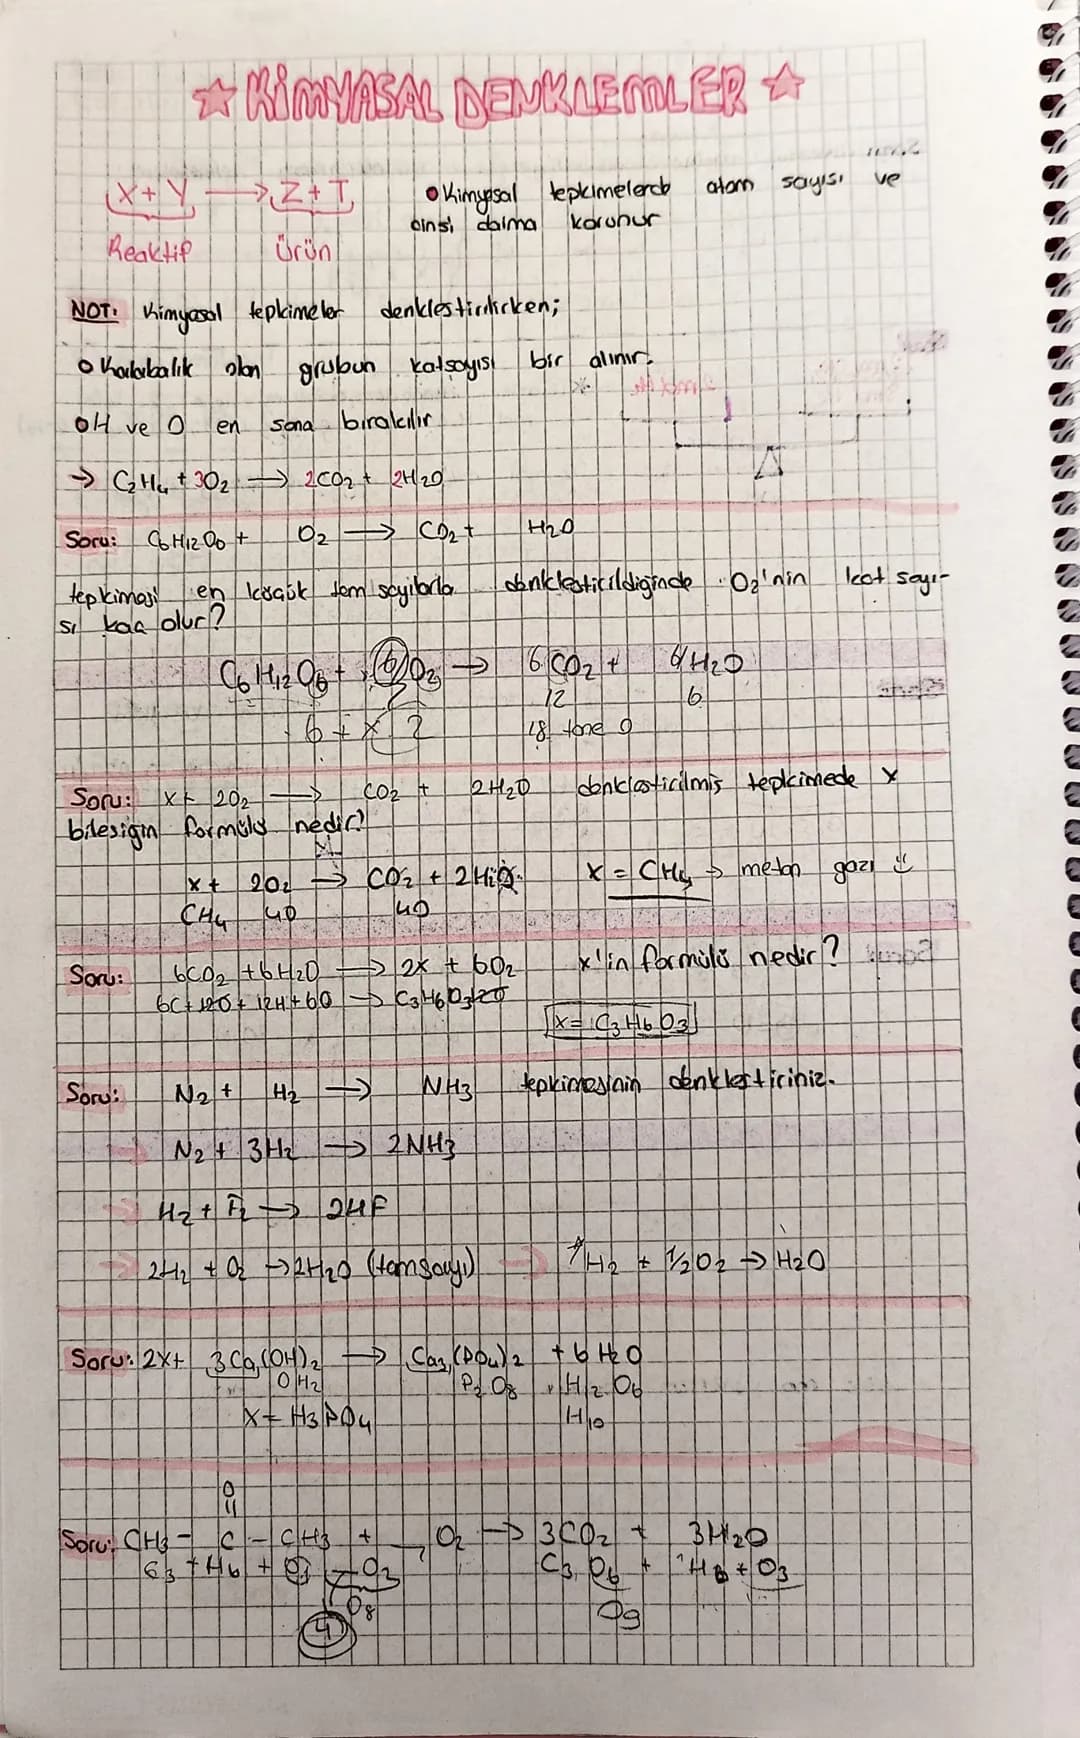 ☆ KİMYASAL DENKLEMLER ☆
X + Y → Z + T
Reaktif Ürün
• Kimyasal tepkimelerde atom sayısı ve
cinsi daima korunur
NOT: Kimyasal tepkimeler denklestirilirken;
o Kalabalık olan grubun katsayısı bir alınır.
o H ve O en sona bırakılır
→ C2H4 + 3O2 → 2CO2 + 2H2O
Soru: C6H12O6 + O2 → CO2 + H2O
tepkimesi en küçük tam sayılarla denklestirildiginde O2'nin kat sayı-
sı kaç olur?
C6H12O6 + 6 O2 → 6 CO2 + 6 H2O
12 6
6 + x 2 18 tane O
Soru: X + 2O2 → CO2 + 2H2O denklestirilmis tepkimede X
bilesigin formülü nedir?
X + 2O2 → CO2 + 2H2O X = CH4 → metan gazı
CH4 4O 4O
Soru: 6CO2 + 6H2O → 2X + 6O2 X'in formülü nedir?
6C + 12O + 12H + 6O → C3H6O3 12O
X = C3H6O3
Soru: N2 + H2 → NH3 tepkimesinin denklestiriniz.
→ N2 + 3H2 → 2NH3
→ H2 + F2 → 2HF
→ 2H2 + O2 → 2H2O (tamsayı) → H2 + 1/2O2 → H2O
Soru: 2X + 3Ca(OH)2 → Ca3(PO4)2 + 6H2O
OH2 P2 O8 H12 O6
X = H3PO4 H10
O
Soru: CH3 - C - CH3 + O2 → 3CO2 + 3H2O
C3 + H6 + O2 C3 O6 + H6 + O3
O8 O9
4